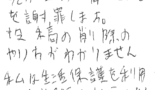 を謝罪します。
投稿の削除の
やりかがわかりません
私は生活保護を利用